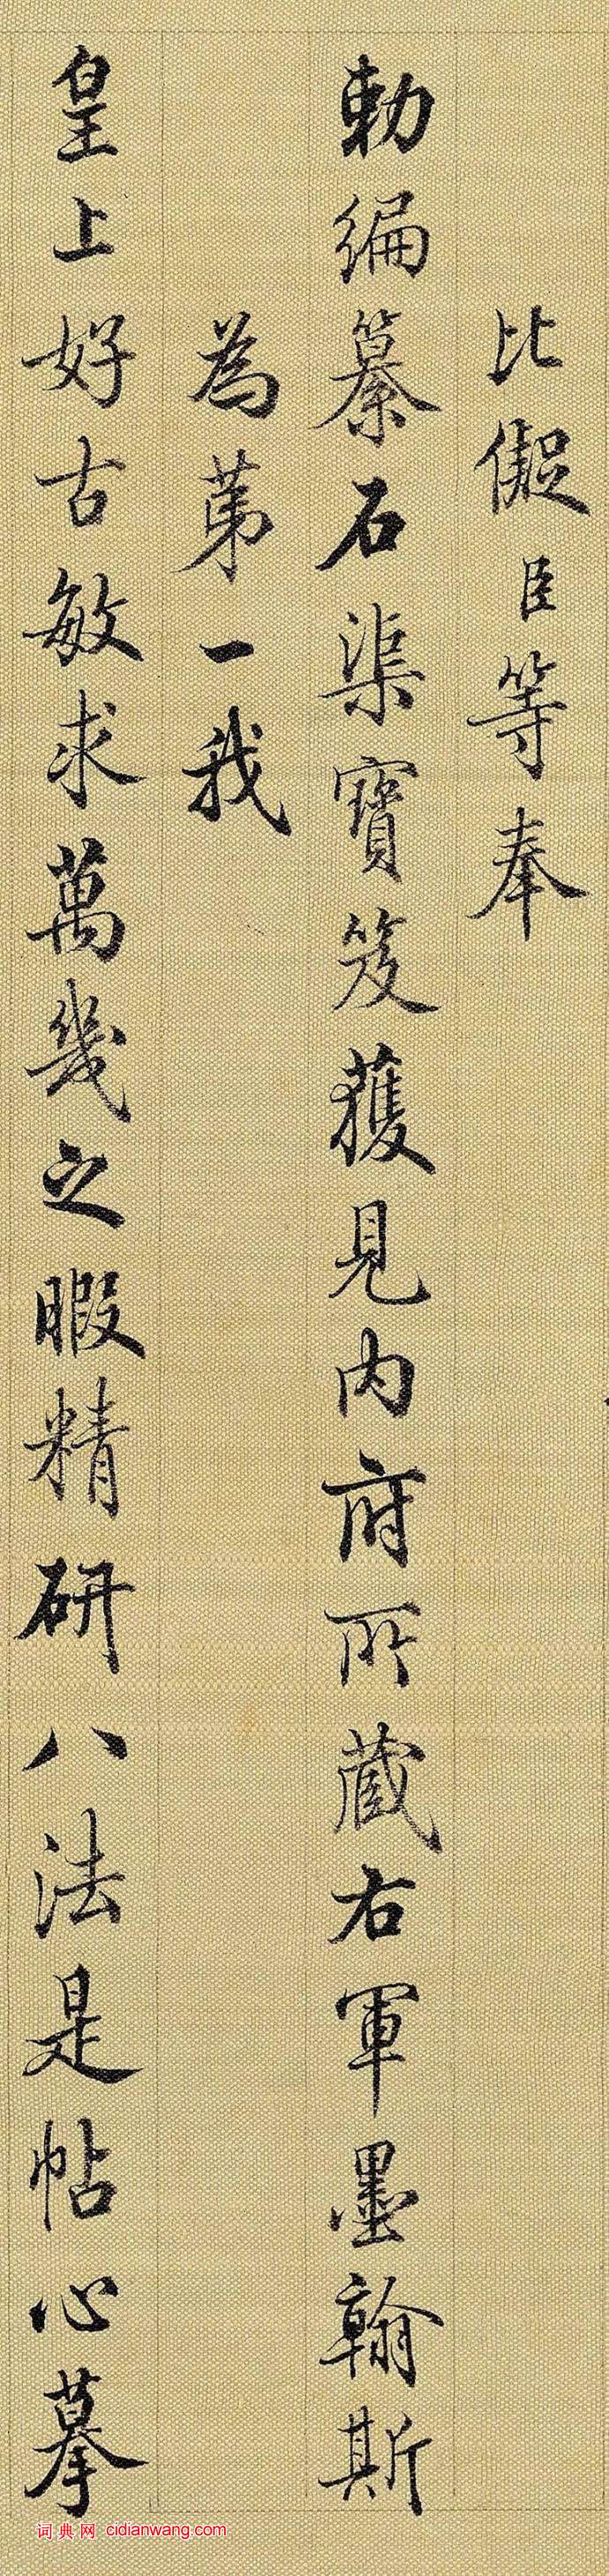 比儗臣等奉
勅編纂石渠寶笈獲見内府所蔵右軍墨翰斯
為苐一我
皇上好古敏求萬幾之暇精研八法是帖心摹
词典网 cidianwang.com